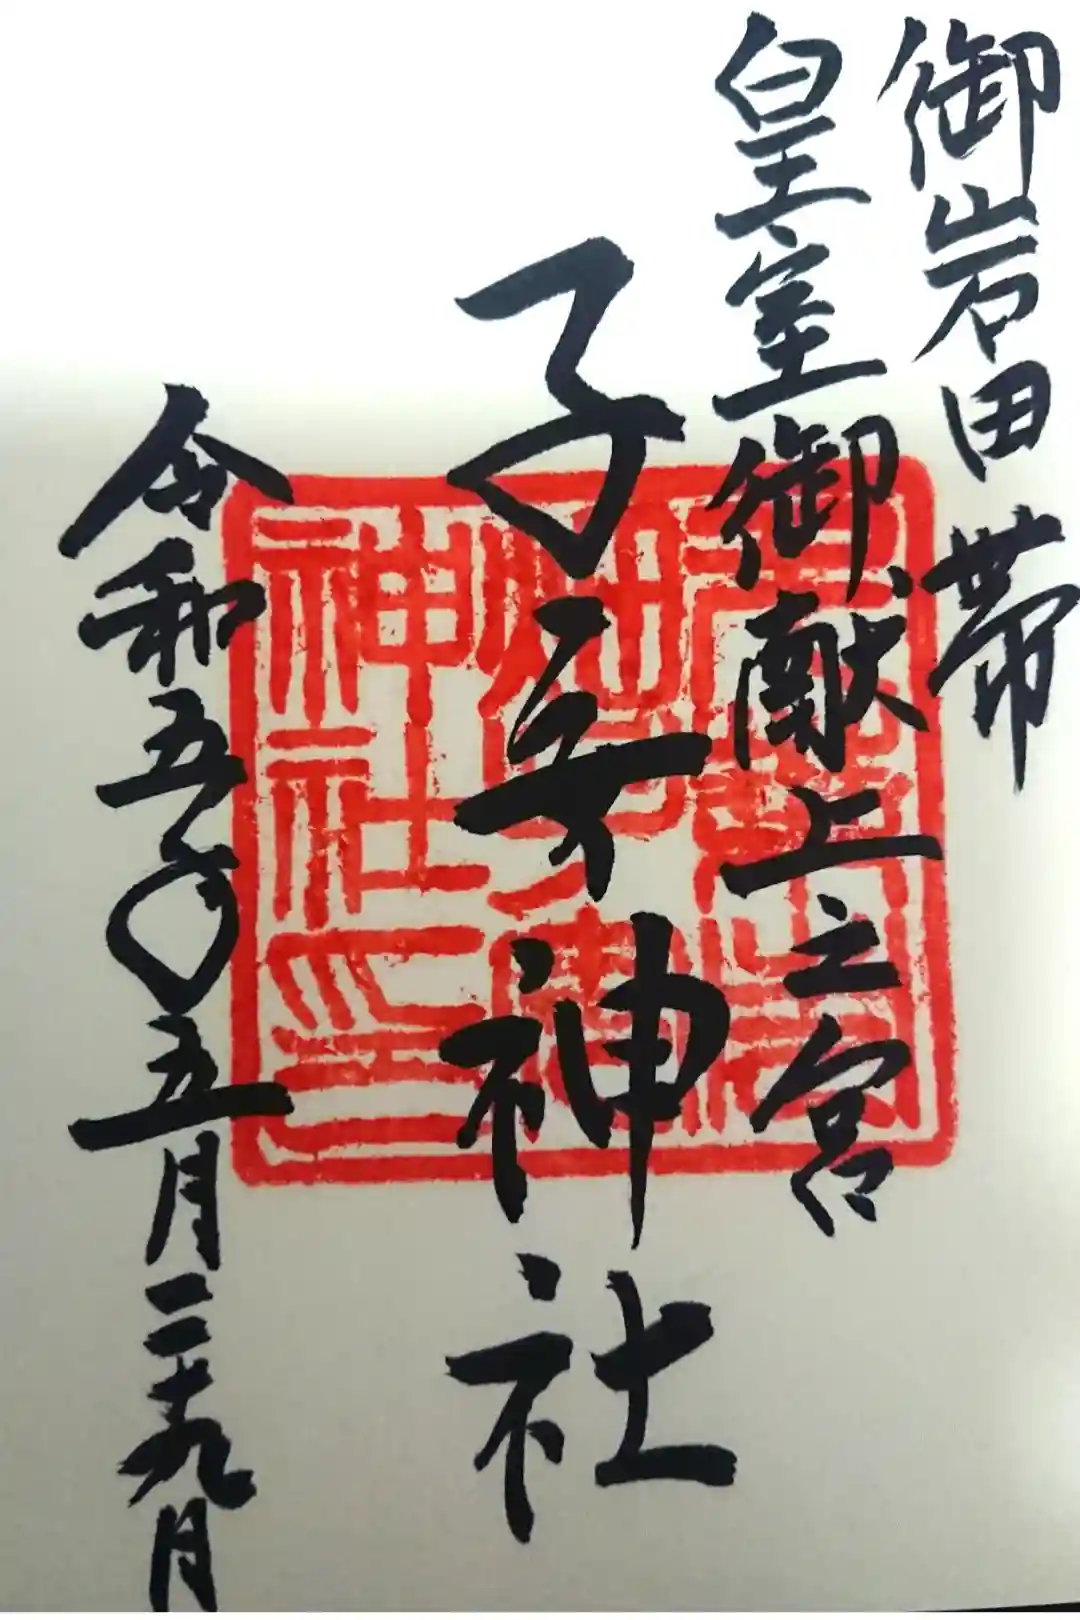 御岩田帯
皇室御献上之宮
子安神社
令和五年五月二十九日